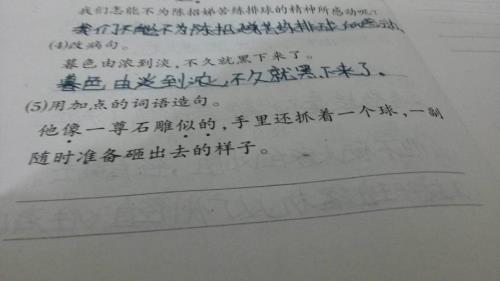 我们怎能不为陈招娣苦练排球的精神所感动呢?
我们不能不为陈招娣苦练排球
(4)改病句。
暮色由浓到淡,不久就黑下来了。
暮色由淡到浓,不久就黑下来了。
(5)用加点的词语造句。
他像一尊石雕似的,手里还抓着一个球,一副
随时准备砸出去的样子。